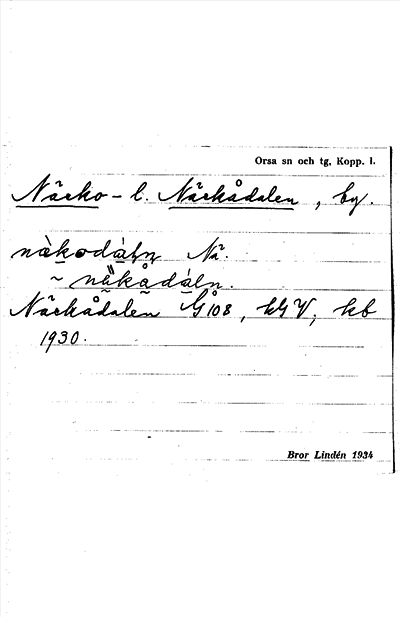 Orsa sn och tg, Kopp. l.
Närko- l. Närkådalen, by.
nàkodáln Nä.
~ näkådáln.
Närkådalen G 108, kG V, kb
1930.
Bror Lindén 1934